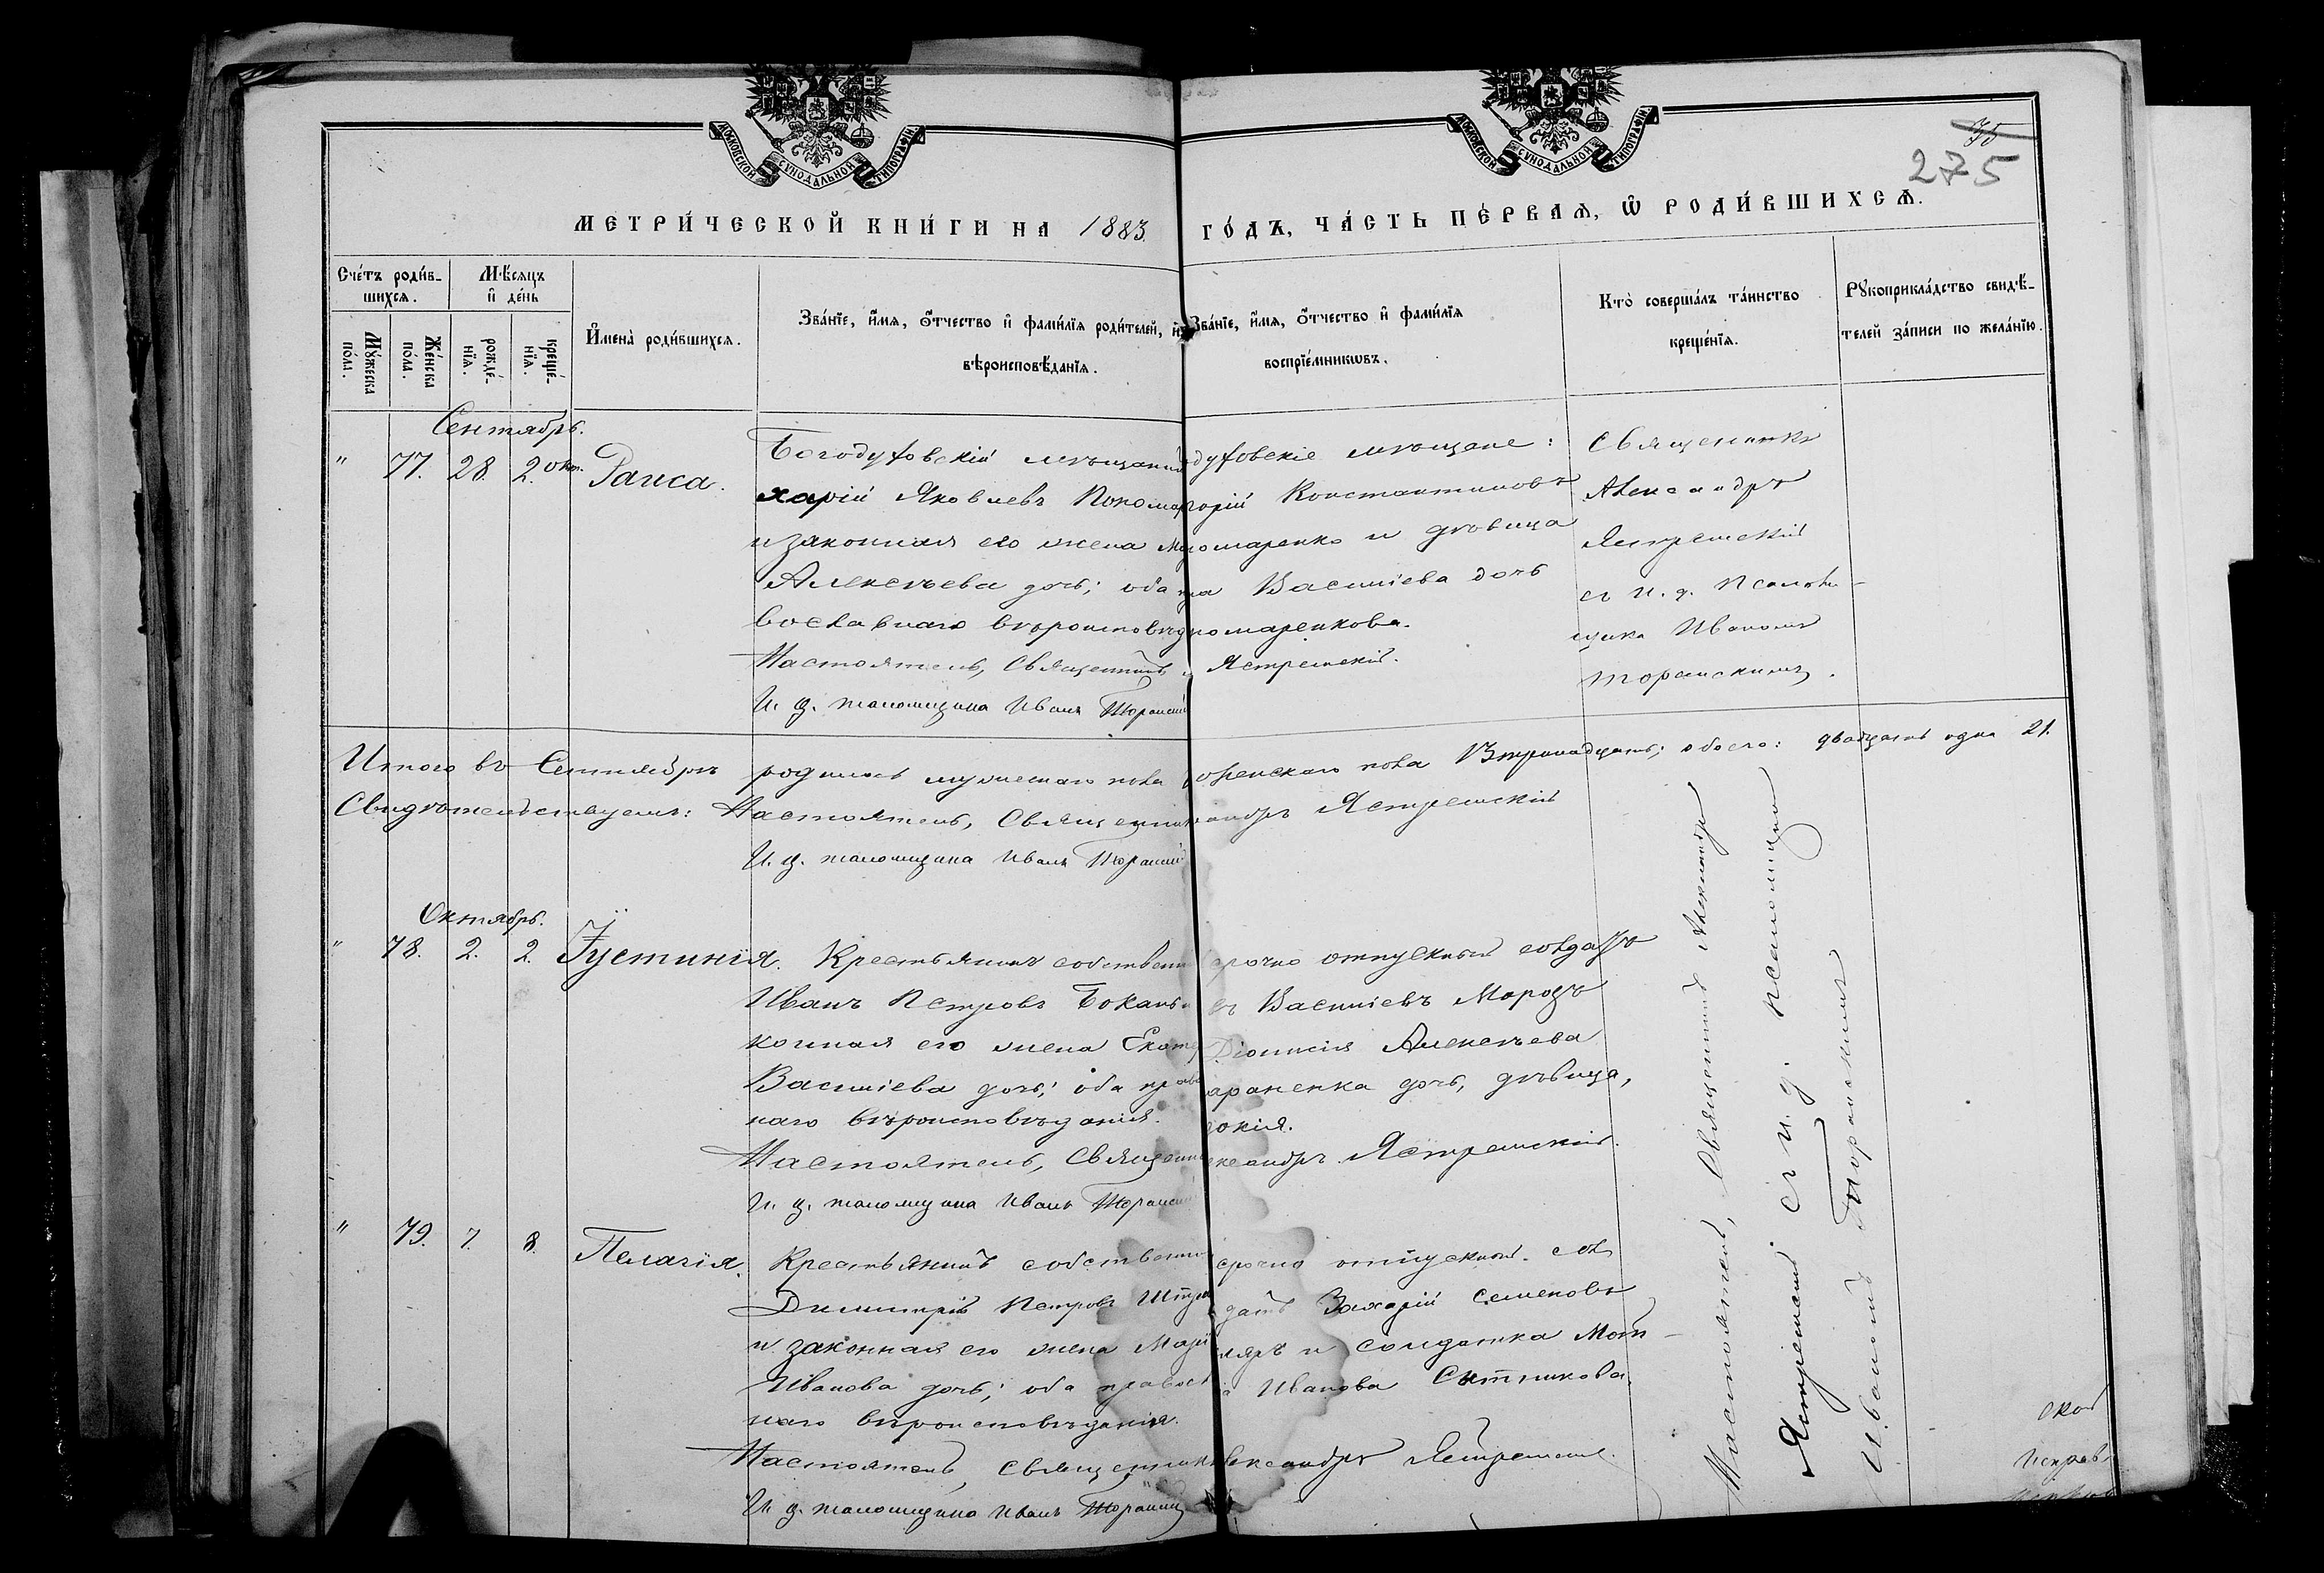 МОСКОВСКОЙ СѴНОДАЛЬНОЙ ТИПОГРАФІИ
МОСКОВСКОЙ СѴНОДАЛЬНОЙ ТИПОГРАФІИ
275
МЕТРИ́ЧЕСКОЙ КНИ́ГИ НА 1883
ГО́ДЪ, ЧА́СТЬ ПЕ́РВАѦ, Ѿ РОДИ́ВШИХСѦ.
Сче́тъ роди́в-
шихсѧ.
Мѣ́сѧцъ
и҆ де́нь
Мꙋ́жеска
по́ла.
Же́нска
по́ла.
рожде́-
нїѧ.
креще́-
нїѧ.
И҆мена̀ роди́вшихсѧ.
Зва́нїе, и҆́мѧ, ѻ҆́тчество и҆ фами́лїѧ роди́телей, и҆
вѣроисповѣ́данїѧ.
Зва́нїе, и҆́мѧ, ѻ҆́тчество и҆ фами́лїѧ
воспрїе́мникѡвъ.
Кто̀ соверша́лъ та́инство
креще́нїѧ.
Рꙋкоприкла́дство свидѣ́-
телей за́писи по жела́нїю.
Сентябрь.
" 77. 28. 2. окт. Раиса.
Богодуховскій мѣщанин
харій Яковлевъ Пономар
и законная его жена
Алексѣева дочь; оба
вославнаго вѣроисповѣд
Настоятель, Священникъ
И. д. псаломщика Иванъ Торанскій
духовскіе мѣщане:
горій Константиновъ
номаренко и дѣвица
на Василіева дочь
номаренкова.
Ястремскій.
Священникъ
Александръ
Ястремскій
съ и. д. псалом-
щика Иваномъ
Торанскимъ.
Итого въ Сентябрѣ родилось мужескаго пола
женскаго пола 13 тринадцать; обоего: двадцать одна 21.
Свидѣтельствуемъ: Настоятель, Священник
сандръ Ястремскій
И. д. псаломщика Иванъ Торанскій
Октябрь.
" 78. 2. 2. Іустинія. Крестьянинъ собственн
Иванъ Петровъ
конная его жена Екате
Василіева дочь; оба прав
наго вѣроисповѣданія.
Настоятель, Священни
И. д. псаломщика Иванъ Торанскій
срочно отпускный солдатъ
ъ Василіевъ Морозъ
Діонисія Алексѣева
араненка дочь, дѣвица,
окія.
ександръ Ястремскій.
" 79. 7. 8. Пелагія. Крестьянинъ собственно
Димитрій Петровъ
и законная его жена Марі
Иванова дочь; оба правосл
наго вѣроисповѣданія.
Настоятель, Священник
И. д. псаломщика Иванъ Торанскій
срочно отпускной сол
датъ Захарій Семеновъ
ляръ и солдатка Мот-
Иванова Сытникова.
лександръ Ястремскій.
Настоятель, Священникъ Александръ
Ястремскій съ и. д. псаломщика
Иваномъ Торанскимъ